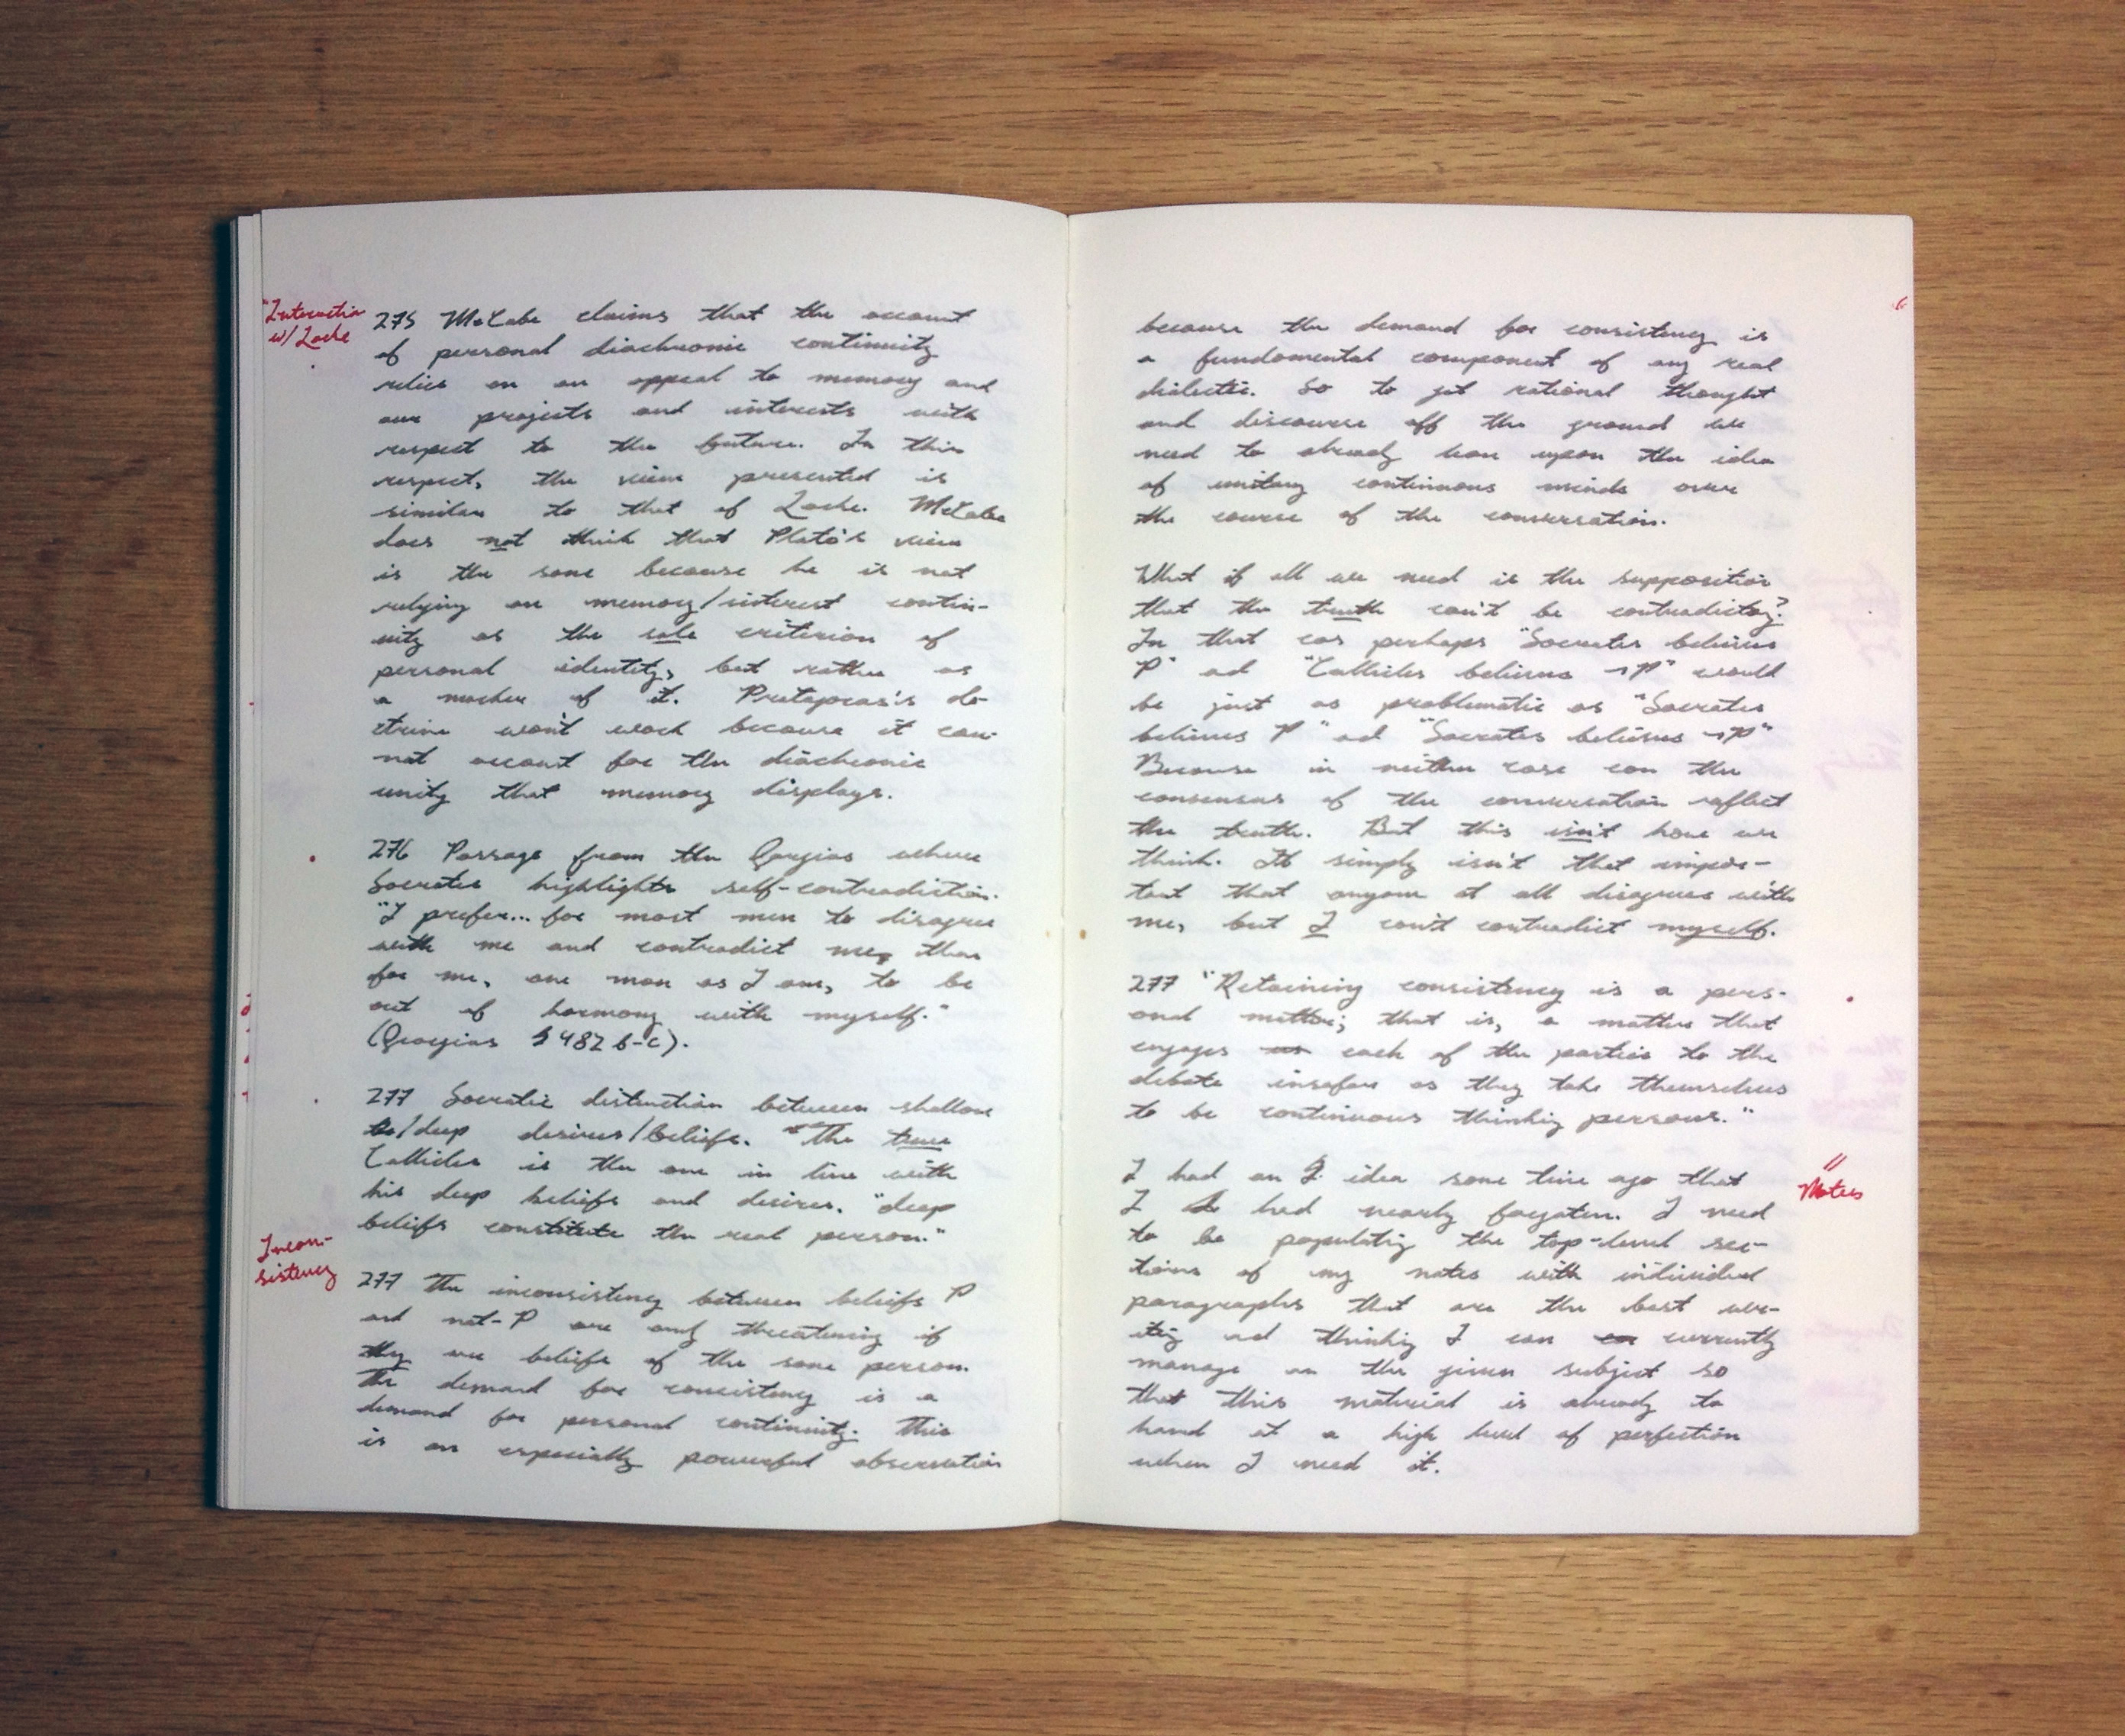 "Interaction
w/ Locke
275 McCabe claims that the account
of personal diachronic continuity
relies on an appeal to memory and
our projects and interests with
respect to the future. In this
respect, the view presented is
similar to that of Locke. McCabe
does not think that Plato's view
is the same because he is not
relying on memory/interest contin-
uity as the sole criterion of
personal identity, but rather as
a marker of it. Protagoras's do-
ctrine won't work because it can-
not account for the diachronic
unity that memory displays.
276 Passage from the Gorgias where
Socrates highlights self-contradiction.
"I prefer... for most men to disagree
with me and contradict me, than
for me, one man as I am, to be
out of harmony with myself."
(Gorgias § 482 b-c).
277 Socratic distinction between shallow
/deep desires/beliefs. "The true
Callicles is the one in line with
his deep beliefs and desires. "deep
beliefs constitute the real person."
Incon-
sistency
277 The inconsistency between beliefs P
and not-P are only threatening if
they are beliefs of the same person.
The demand for consistency is a
demand for personal continuity. This
is an especially powerful observation
because the demand for consistency is
a fundamental component of any real
dialectic. So to get rational thought
and discourse off the ground we
need to already lean upon the idea
of unitary continuous minds over
the course of the conversation.
What if all we need is the supposition
that the truth can't be contradictory?
In that cas perhaps "Socrates believes
P" ad "Callicles believes ¬P" would
be just as problematic as "Socrates
believes P" ad "Socrates believes ¬P"
Because in neither case can the
consensus of the conversation reflect
the truth. But this isn't how we
think. It simply isn't that impor-
tant that anyone at all disagrees with
me, but I can't contradict myself.
277 "Retaining consistency is a pers-
onal matter; that is, a matter that
engages each of the parties to the
debate insofar as they take themselves
to be continuous thinking persons."
I had an idea some time ago that
I had nearly forgotten. I need
to be populating the top-level sec-
tions of my notes with individual
paragraphs that are the best wri-
ting and thinking I can currently
manage on the given subject so
that this material is already to
hand at a high level of perfection
when I need it.
"
Notes